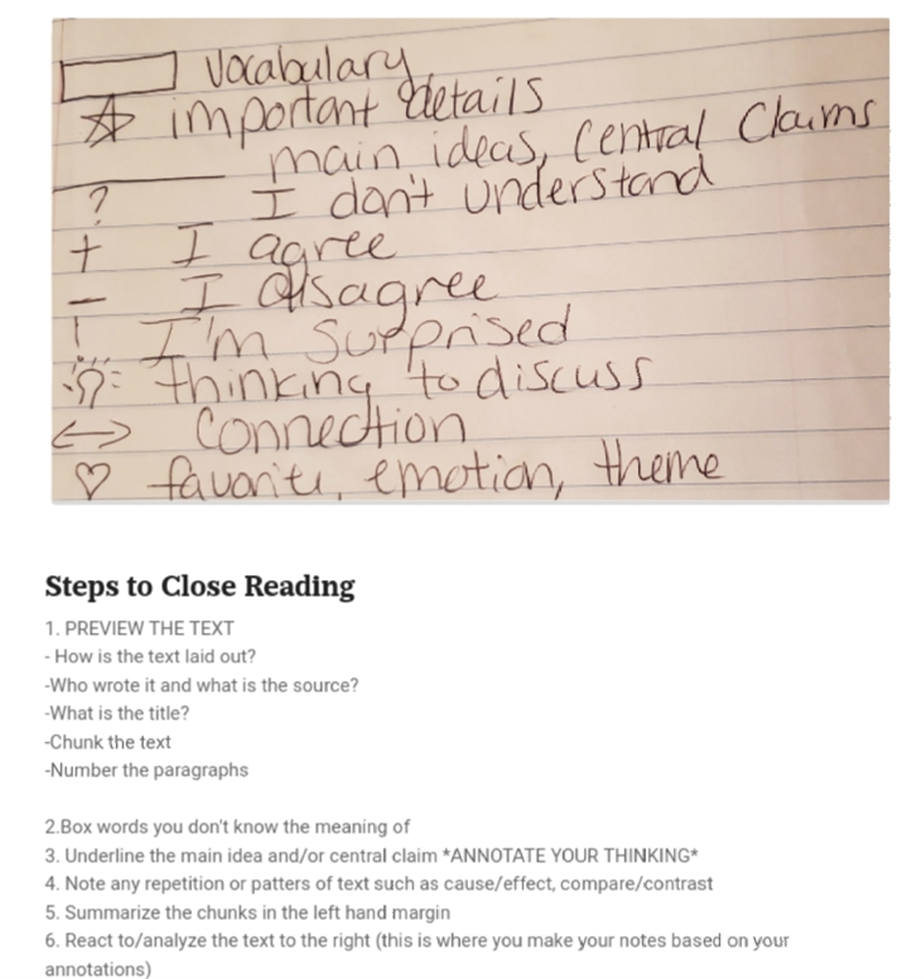 Vocabulary
important details
main ideas, Central Claims
? I don't understand
+ I agree
− I disagree
! I'm surprised
thinking to discuss
Connection
favorite, emotion, theme
Steps to Close Reading
1. PREVIEW THE TEXT
- How is the text laid out?
-Who wrote it and what is the source?
-What is the title?
-Chunk the text
-Number the paragraphs
2.Box words you don't know the meaning of
3. Underline the main idea and/or central claim *ANNOTATE YOUR THINKING*
4. Note any repetition or patters of text such as cause/effect, compare/contrast
5. Summarize the chunks in the left hand margin
6. React to/analyze the text to the right (this is where you make your notes based on your
annotations)